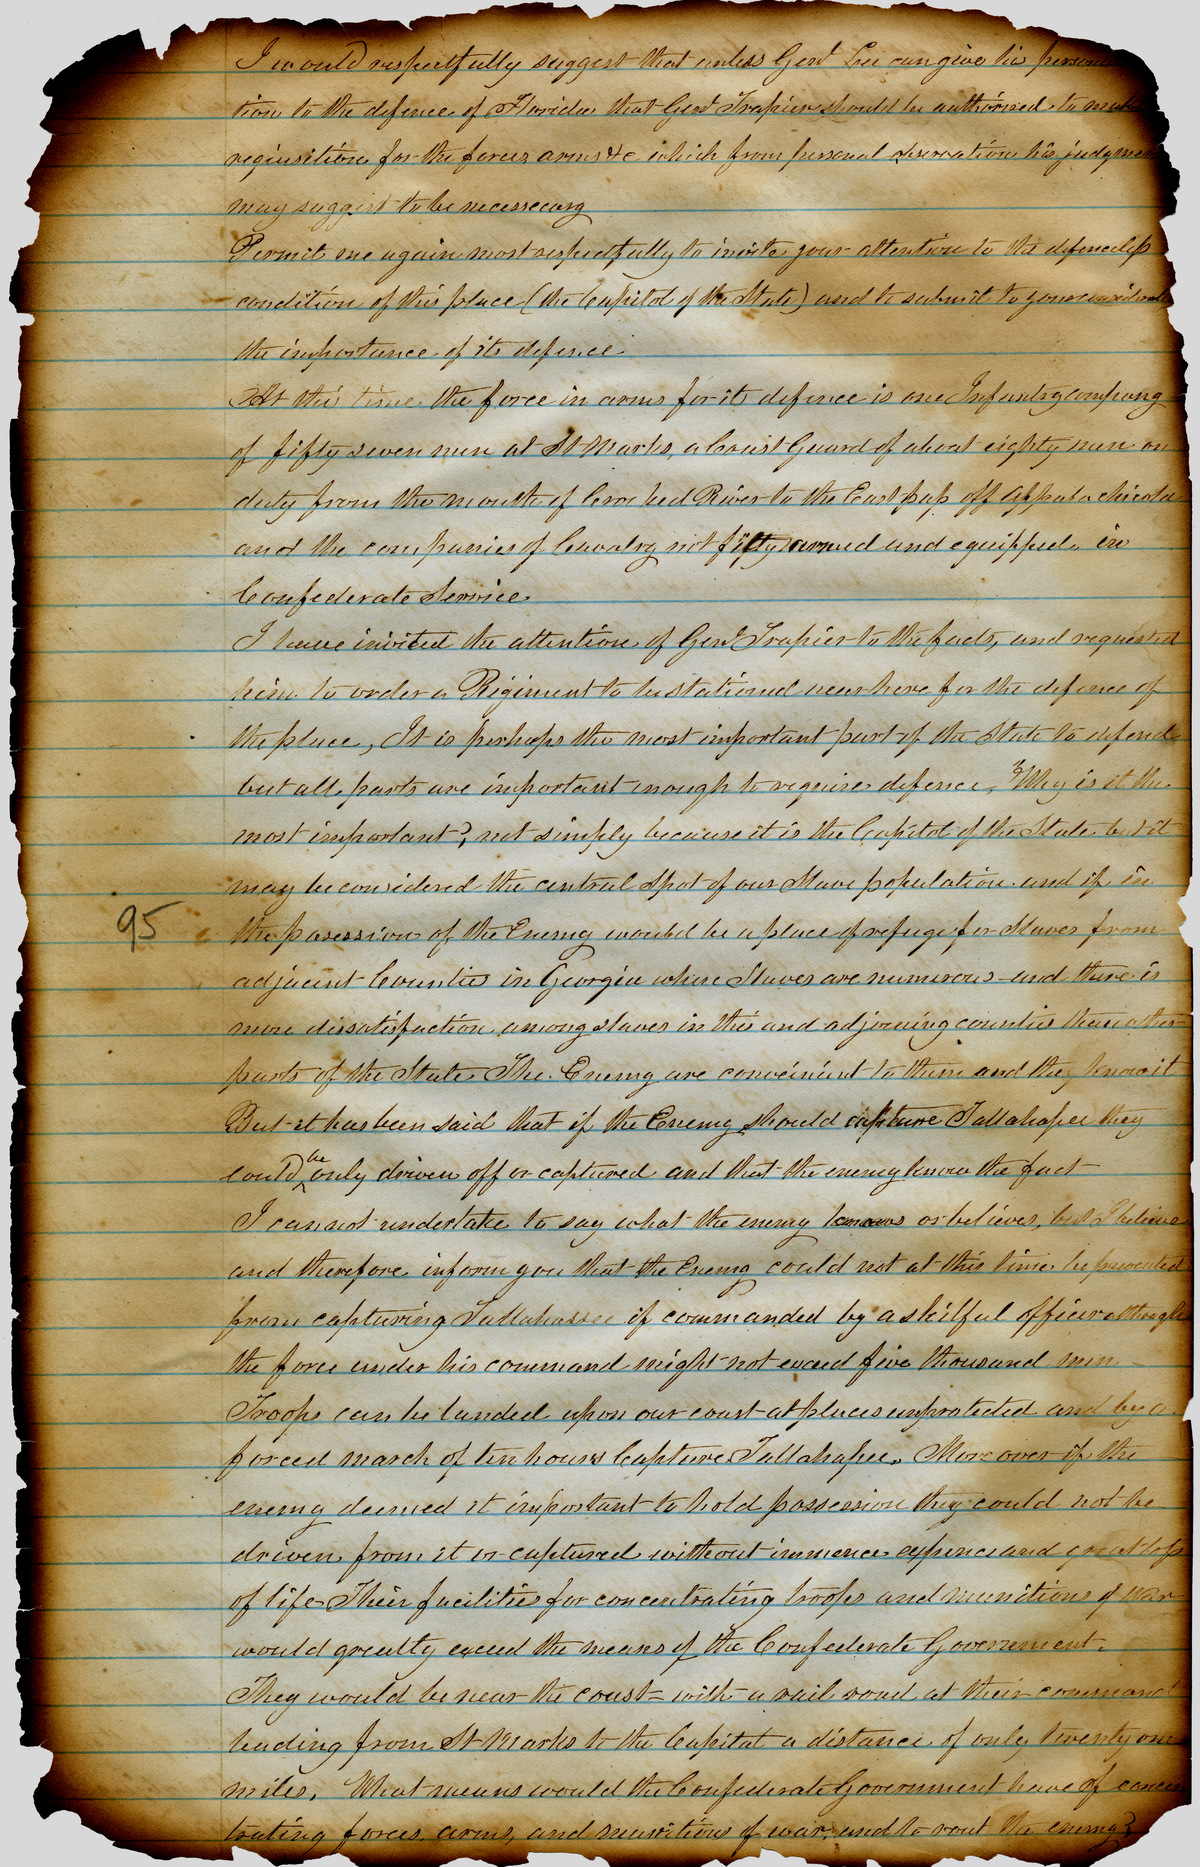 I would respectfully suggest that unless Genl Lee can give his person
tion to the defence of Florida that Genl Trapier should be authorized to make
requisition for the forces arms &c which from personal observation his judgmen
may suggest to be necessary
Permit me again most respectfully to invite your attention to the defenceless
condition of this place (the Capitol of the State) and to submit to your
the importance of its defence
At this time the force in arms for its defence is one Infantry company
of fifty seven men at St Marks, a Coast Guard of about eighty men on
duty from the mouth of Crooked River to the East pass off Appalachicola
and the companies of Cavalry not fifty armed and equipped in
Confederate Service.
I have invited the attention of Genl Trapier to the facts, and requested
him to order a Regiment to be stationed near here for the defence of
the place, It is perhaps the most important part of the State to defend
but all parts are important enough to require defence, Why is it the
most important?, not simply because it is the Capitol of the State but it
may be considered the central spot of our Slave population and if in
the posession of the Enemy would be a place of refuge for Slaves from
adjacent Counties in Georgia where Slaves are numerous and there is
more dissatisfaction among slaves in this and adjoining counties than other
parts of the State The Enemy are convenient to them and they know it
But it has been said that if the Enemy should capture Tallahassee they
could be only driven off or captured and that the enemy know the fact
I cannot undertake to say what the enemy knows or believes, but I believe
and therefore inform you that the Enemy could not at this time be prevented
from capturing Tallahassee if commanded by a skilful officer although
the force under his command might not exceed five thousand men
Troops can be landed upon our coast at places unprotected and by a
forced march of ten hours Capture Tallahassee. More over if the
enemy deemed it important to hold possession they could not be
driven from it or captured without immence expence and great loss
of life Their facilities for concentrating troops and munitions of war
would greatly exceed the means of the Confederate Government.
They would be near the coast with a rail road at their command
leading from St Marks to the Capital a distance of only twenty one
miles, What means would the Confederate Government have of concen
trating forces, arms, and munitions of war, and to rout the enemy?
95